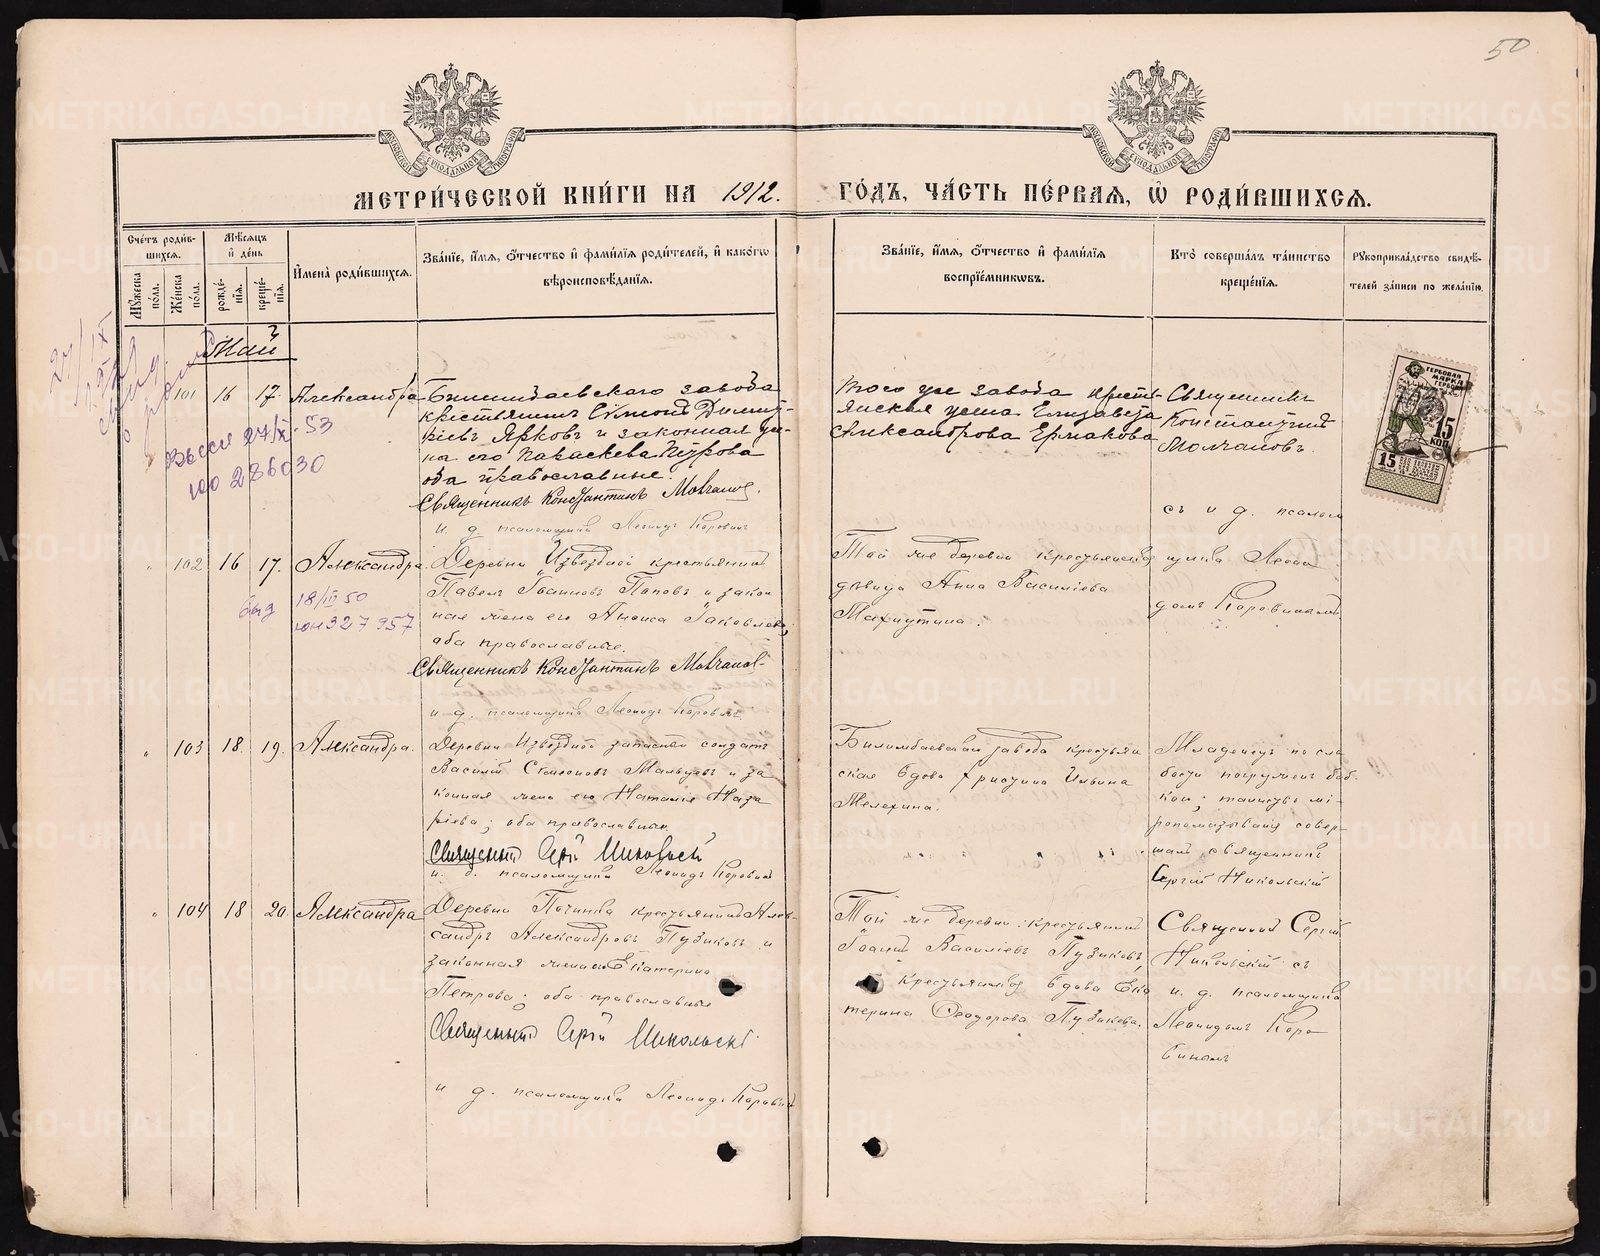 50
МЕТРИЧЕСКОЙ КНИГИ НА 1912. ГОДЪ, ЧАСТЬ ПЕРВАЯ, Ѿ РОДИВШИХСЯ.
Счетъ родив-
шихся.
Мужеска пола.
Женска пола.
Мѣсяцъ
и день
рожде-
нія.
креще-
нія.
Имена родившихся.
Званіе, имя, отчество и фамилія родителей, и какогѡ
вѣроисповѣданія.
Званіе, имя, отчество и фамилія
воспріемникѡвъ.
Кто совершалъ таинство
крещенія.
Рукоприкладство свидѣ-
телей записи по желанію.
Май
101 16 17. Александра
Билимбаевскаго завода
крестьянинъ Сѵмеонъ Димит-
ріевъ Ярковъ и законная же-
на его Параскева Петрова
оба православные.
Священникъ Константинъ Молчановъ.
и. д. псаломщика Леонидъ Коровинъ
Того же завода кресть-
янская жена Елизавета
Александрова Ермакова
Священникъ
Константинъ
Молчановъ
съ и д. псалом
щика Леони
домъ Коровинымъ
27/XI-53
ЮО 286030
ГЕРБОВАЯ
МАРКА
15
КОП
15
" 102 16 17. Александра
18/III 50
ЮН 327957
Деревни Извездной крестьянинъ
Павелъ Іоанновъ Поповъ и закон
ная жена его Анисія Іаковлева;
оба православные.
Священникъ Константинъ Молчановъ
и. д. псаломщика Леонидъ Коровинъ
Той же деревни крестьянская
дѣвица Анна Василіева
Махнутина.
" 103 18. 19. Александра.
Деревни Извездной запасный солдатъ
Василій Симеоновъ Мальцевъ и за
конная жена его Наталія Наза
ріева; оба православные.
Священникъ Сергій Никольскій
и. д. псаломщика Леонидъ Коровинъ
Билимбаевскаго завода крестьян
ская вдова Христина Ильина
Мелехина.
Младенецъ по сла
бости погруженъ баб-
кою; таинство мѵ-
ропомазыванія совер-
шалъ священникъ
Сергій Никольскій
" 104 18 20. Александра
Деревни Починка крестьянинъ Алек-
сандръ Александровъ Пузиковъ и
законная жена Екатерина
Петрова; оба православные
Священникъ Сергій Никольскій
и д. псаломщика Леонидъ Коровинъ
Той же деревни: крестьянинъ
Іоаннъ Василіевъ Пузиковъ,
крестьянская вдова Ека
терина Ѳеодорова Пузикова.
Священникъ Сергій
Никольскій съ
и. д. псаломщика
Леонидомъ Коро
винымъ